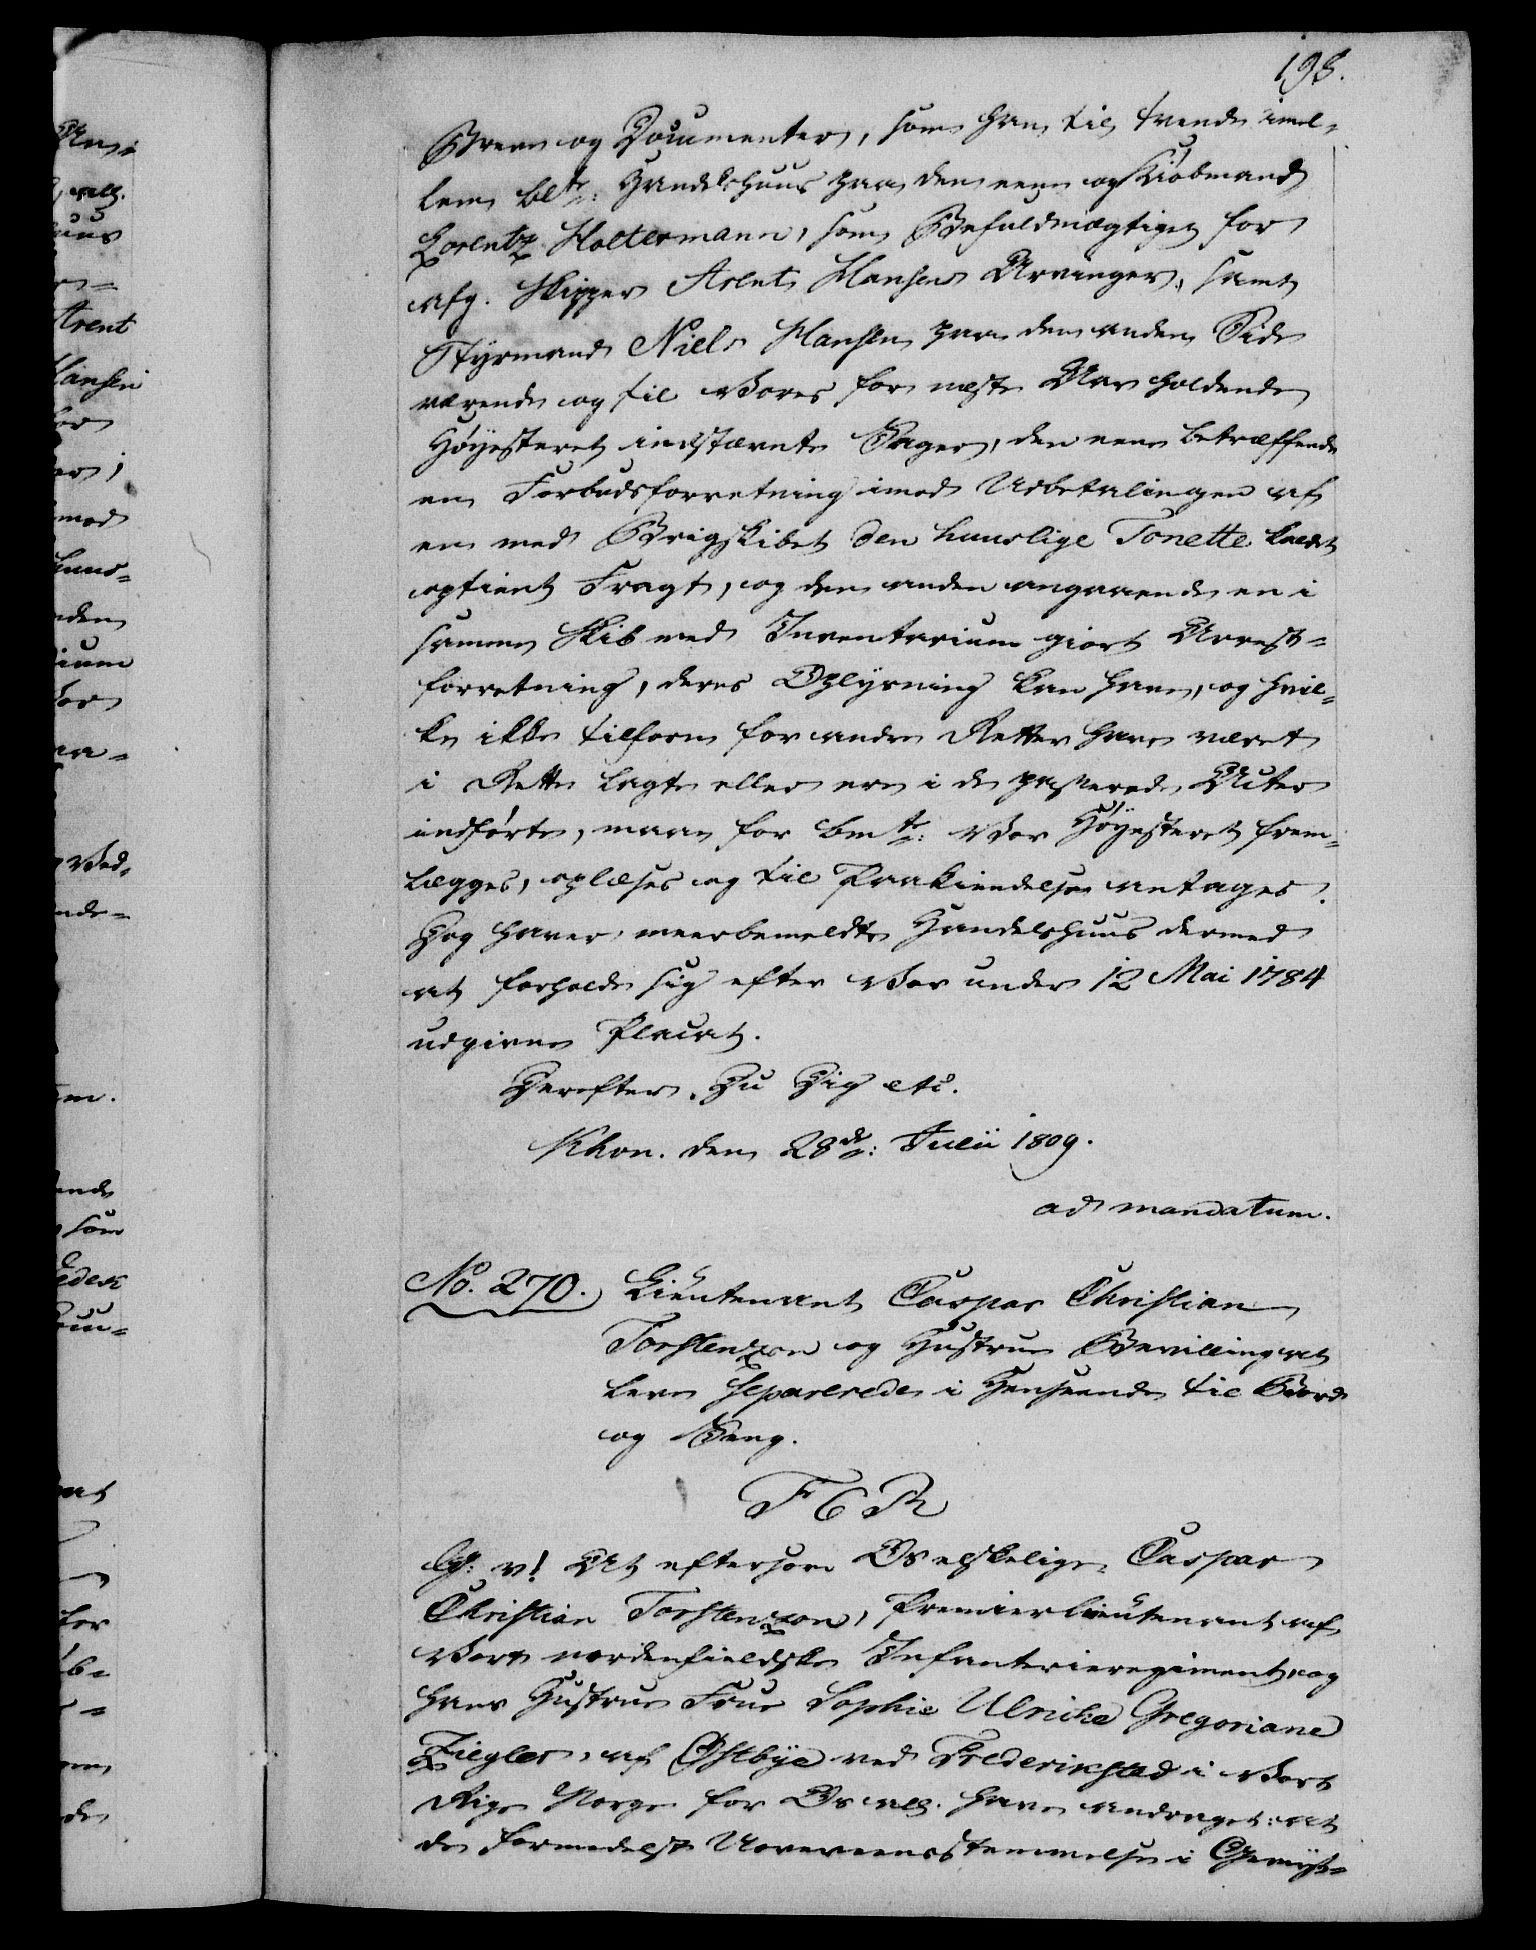 198.
Breve og Documenter, som han til trende imel-
lem bltе: Handelshuus paa den eene og Kiøbmand
Lorentz Holtermann, som Befuldmægtiget for
afg. Skipper Arent Hansens Arvinger, samt
Styrmand Niels Hansen paa den anden Side
værende og til Vores for næste Aar holdende
Høyesteret indstævnte Sager, den eene betræffende
en Forbudsforretning imod Udbetalingen af
en med Brigskibet den huuslige Tonette kaldt
optient Fragt, og den anden angaaende en i
samme Skib med Inventarium giort Arrest-
forretning, deres Oplysning kan have, og hvil-
ke ikke tilforn for andre Retter have været
i Rette lagte eller ere i de passerede Acter
indførte, maae for bemte: Vor Høyesteret frem-
lægges, oplæses og til Paakiendelse antages.
Dog haver meerbemeldte Handelshuus dermed
at forholde sig efter Vor under 12 Mai 1784
udgivne Placat.
Derefter Du Dig etc.
Khvn. den 28de: Julii 1809.
ad mandatum.
No. 270. Lieutenant Caspar Christian
Torstenzon og Hustrue Bevilling at
leve separerede i Henseende til Bord
og Seng.
F 6 R
G: v! At eftersom Os elskelige Caspar
Christian Torstenzon, Premierlieutenant af
Vort nordenfieldske Infanterieregiment, og
hans Hustrue Frue Sophie Ulriche Gregoriane
Ziegler, af Østbye ved Frederiksstad i Vort
Rige Norge for Os all. have andraget: at
de formedelst Uovereensstemmelse i Gemyt-